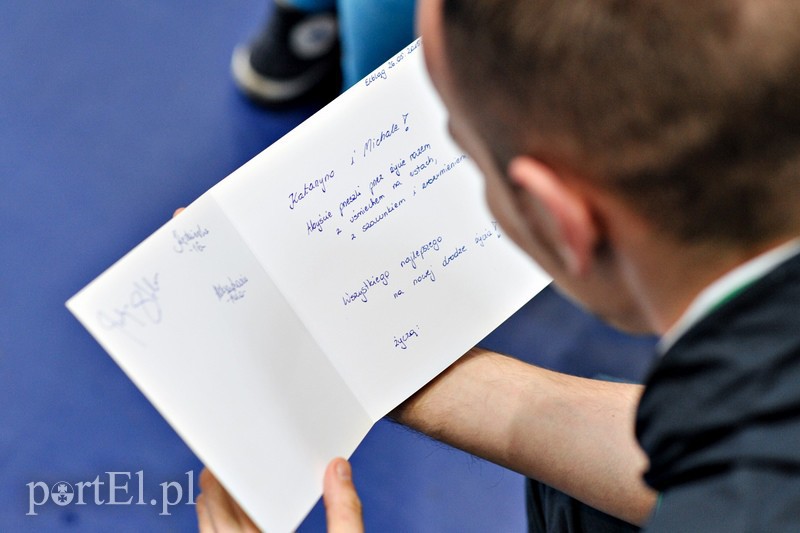 Elbląg 26.05.
Katarzyno i Michale!
Abyście przeszli przez życie razem
z uśmiechem na ustach,
z szacunkiem i zrozumieniem
Wszystkiego najlepszego
na nowej drodze życia!
życzą:
portEl.pl